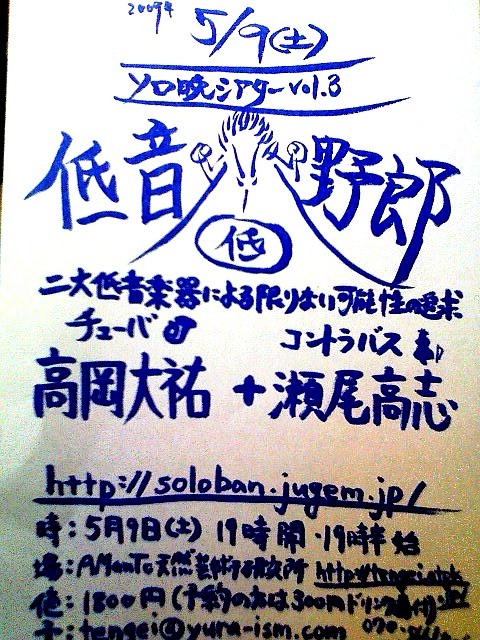 2009年
5/9(土)
ソロ晩シアターvol.3
低音 野郎
低
二大低音楽器による限りない可能性の追求
チューバ コントラバス
高岡大祐 + 瀬尾高志
http://soloban.jugem.jp/
時：5月9日(土) 19時開・19時半始
場：AManTo天然芸術研究所
他：1800円(予約の方は300円ドリンク券付)
予：tengei@yura-ism.com